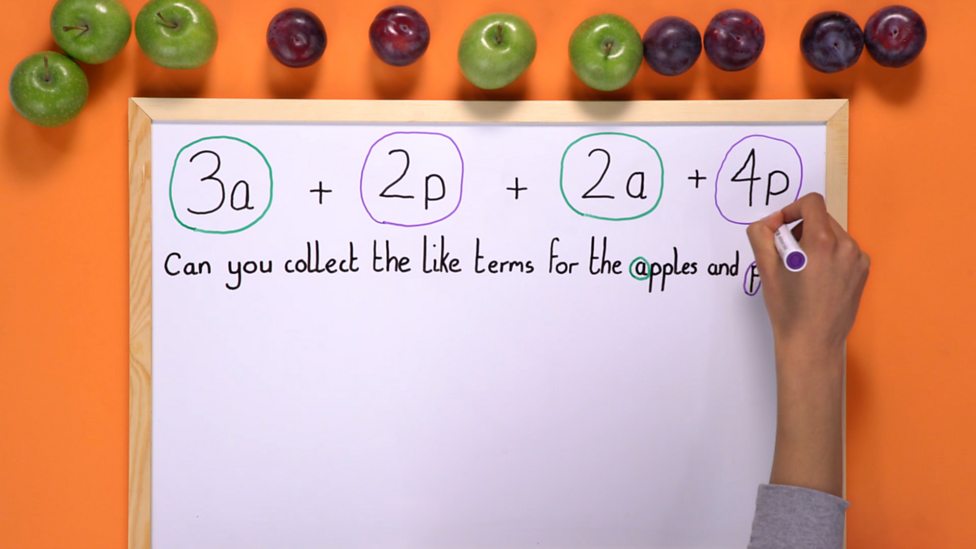 3a + 2p + 2a + 4p
Can you collect the like terms for the apples and